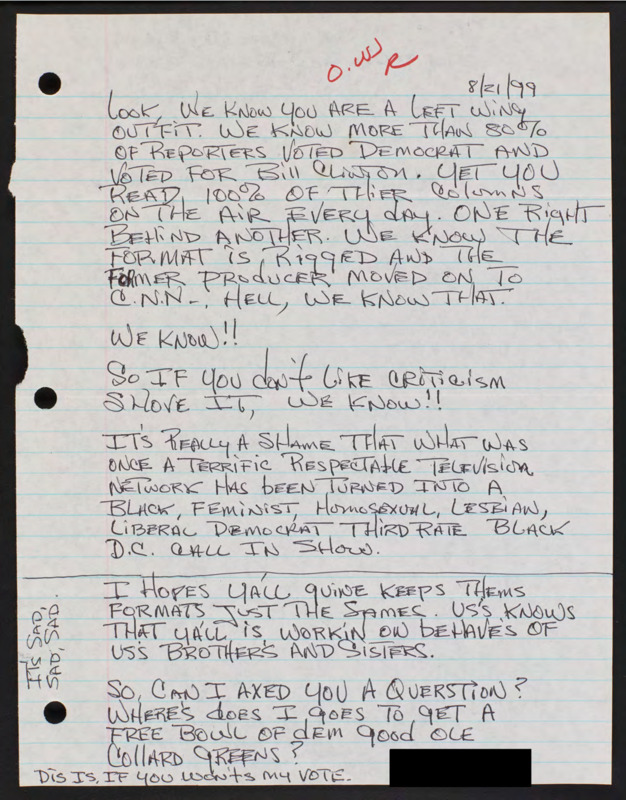 O.W R
8/21/99
LOOK, WE KNOW YOU ARE A LEFT WING
OUTFIT. WE KNOW MORE THAN 80%
OF REPORTERS VOTED DEMOCRAT AND
VOTED FOR BILL CLINTON. YET YOU
READ 100% OF THIER COLUMNS
ON THE AIR EVERY DAY. ONE RIGHT
BEHIND ANOTHER. WE KNOW THE
FORMAT IS RIGGED AND THE
FORMER PRODUCER MOVED ON TO
C.N.N-. HELL, WE KNOW THAT.
WE KNOW!!
SO IF YOU don't LIKE CRITICISM
SHOVE IT, WE KNOW!!
IT'S REALLY A SHAME THAT WHAT WAS
ONCE A TERRIFIC RESPECTABLE TELEVISION
NETWORK HAS BEEN TURNED INTO A
BLACK, FEMINIST, HOMOSEXUAL, LESBIAN,
LIBERAL DEMOCRAT THIRD RATE BLACK
D.C. CALL IN SHOW.
I HOPES YALL QUINE KEEPS THEMS
FORMATS JUST THE SAMES. US'S KNOWS
THAT YA'LL IS, WORKIN ON BEHAVES OF
US'S BROTHERS AND SISTERS.
IT'S SAD,
SAD, SAD.
SO, CAN I AXED YOU A QUERSTION?
WHERE'S DOES I GOES TO GET A
FREE BOWL OF DEM GOOD OLE
COLLARD GREENS?
DIS IS, IF YOU WONTS MY VOTE.